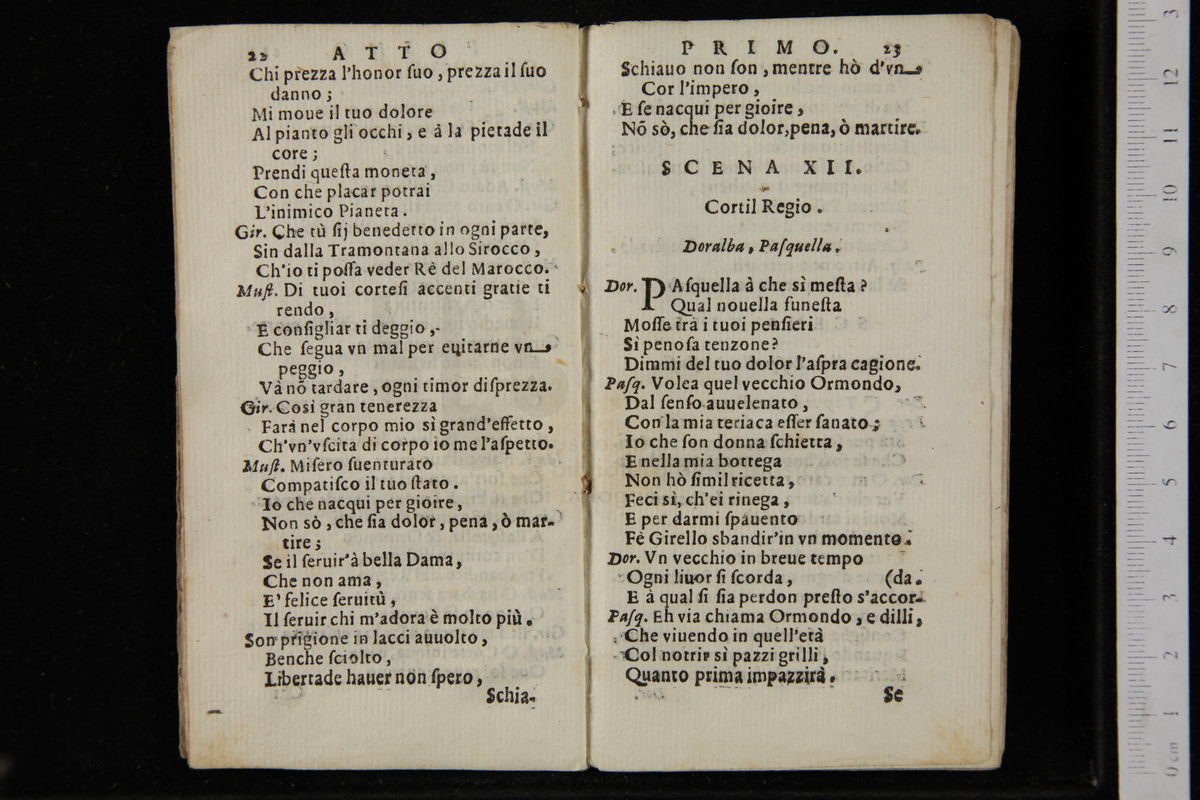 22 ATTO
Chi prezza l'honor ſuo, prezza il ſuo
danno;
Mi moue il tuo dolore
Al pianto gli occhi, e à la pietade il
core;
Prendi queſta moneta,
Con che placar potrai
L'inimico Pianeta.
Gir. Che tù ſij benedetto in ogni parte,
Sin dalla Tramontana allo Sirocco,
Ch'io ti poſſa veder Rè del Marocco.
Muſt. Di tuoi corteſi accenti gratie ti
rendo,
E conſigliar ti deggio,
Che ſegua vn mal per euitarne vn
peggio,
Và nõ tardare, ogni timor diſprezza.
Gir. Così gran tenerezza
Farà nel corpo mio sì grand'effetto,
Ch'vn'vſcita di corpo io me l'aſpetto.
Muſt. Miſero ſuenturato
Compatiſco il tuo ſtato.
Io che nacqui per gioire,
Non sò, che ſia dolor, pena, ò mar-
tire;
Se il ſeruir'à bella Dama,
Che non ama,
E' felice ſeruitù,
Il ſeruir chi m'adora è molto più.
Son prigione in lacci auuolto,
Benche ſciolto,
Libertade hauer non ſpero,
Schia-
PRIMO. 23
Schiauo non ſon, mentre hò d'vn
Cor l'impero,
E ſe nacqui per gioire,
Nõ sò, che ſia dolor, pena, ò martire.
SCENA XII.
Cortil Regio.
Doralba, Paſquella.
Dor. PAſquella à che sì meſta?
Qual nouella funeſta
Moſſe trà i tuoi penſieri
Sì penoſa tenzone?
Dimmi del tuo dolor l'aſpra cagione.
Paſq. Volea quel vecchio Ormondo,
Dal ſenſo auuelenato,
Con la mia teriaca eſſer ſanato;
Io che ſon donna ſchietta,
E nella mia bottega
Non hò ſimil ricetta,
Feci sì, ch'ei rinega,
E per darmi ſpauento
Fè Girello sbandir'in vn momento.
Dor. Vn vecchio in breue tempo
Ogni liuor ſi ſcorda, (da.
E à qual ſi ſia perdon preſto s'accor-
Paſq. Eh via chiama Ormondo, e dilli,
Che viuendo in quell'età
Col notrir sì pazzi grilli,
Quanto prima impazzirà.
Se